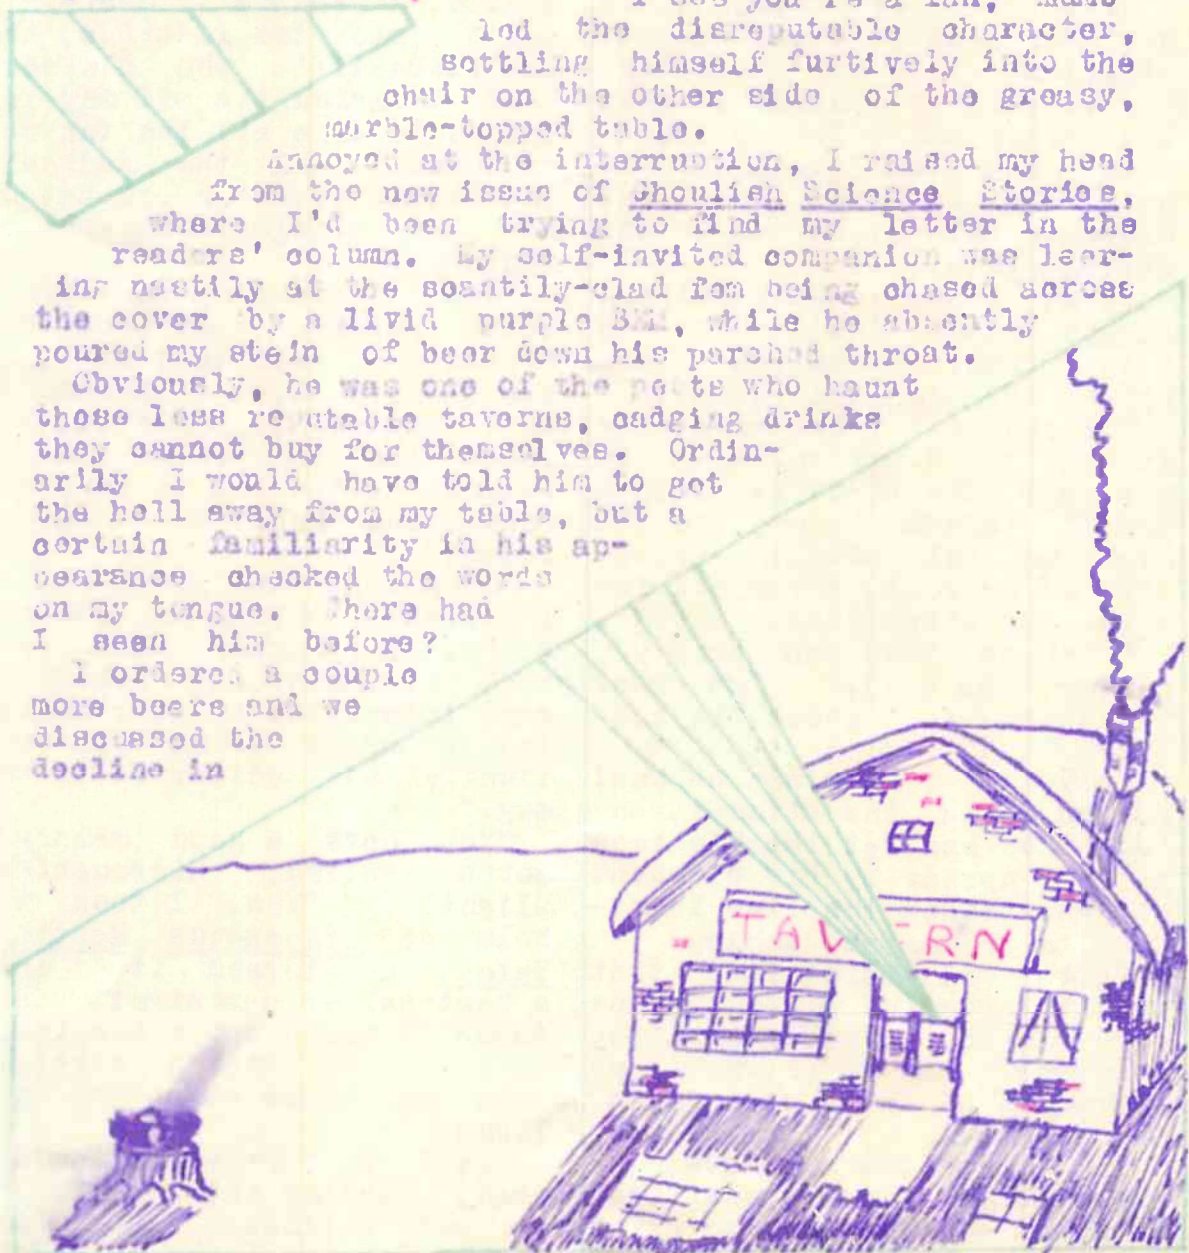 led the disreputable character,
settling himself furtively into the
chair on the other side of the greasy,
marble-topped table.
Annoyed at the interruption, I raised my head
from the new issue of Ghoulish Science Stories,
where I'd been trying to find my letter in the
readers' column. My self-invited companion was leer-
ing nastily at the scantily-clad fem being chased across
the cover by a livid purple BEM, while he absently
poured my stein of beer down his parched throat.
Obviously, he was one of the pests who haunt
those less reputable taverns, cadging drinks
they cannot buy for themselves. Ordin-
arily I would have told him to get
the hell away from my table, but a
certain familiarity in his ap-
pearance checked the words
on my tongue. Where had
I seen him before?
I ordered a couple
more beers and we
discussed the
decline in
TAVERN